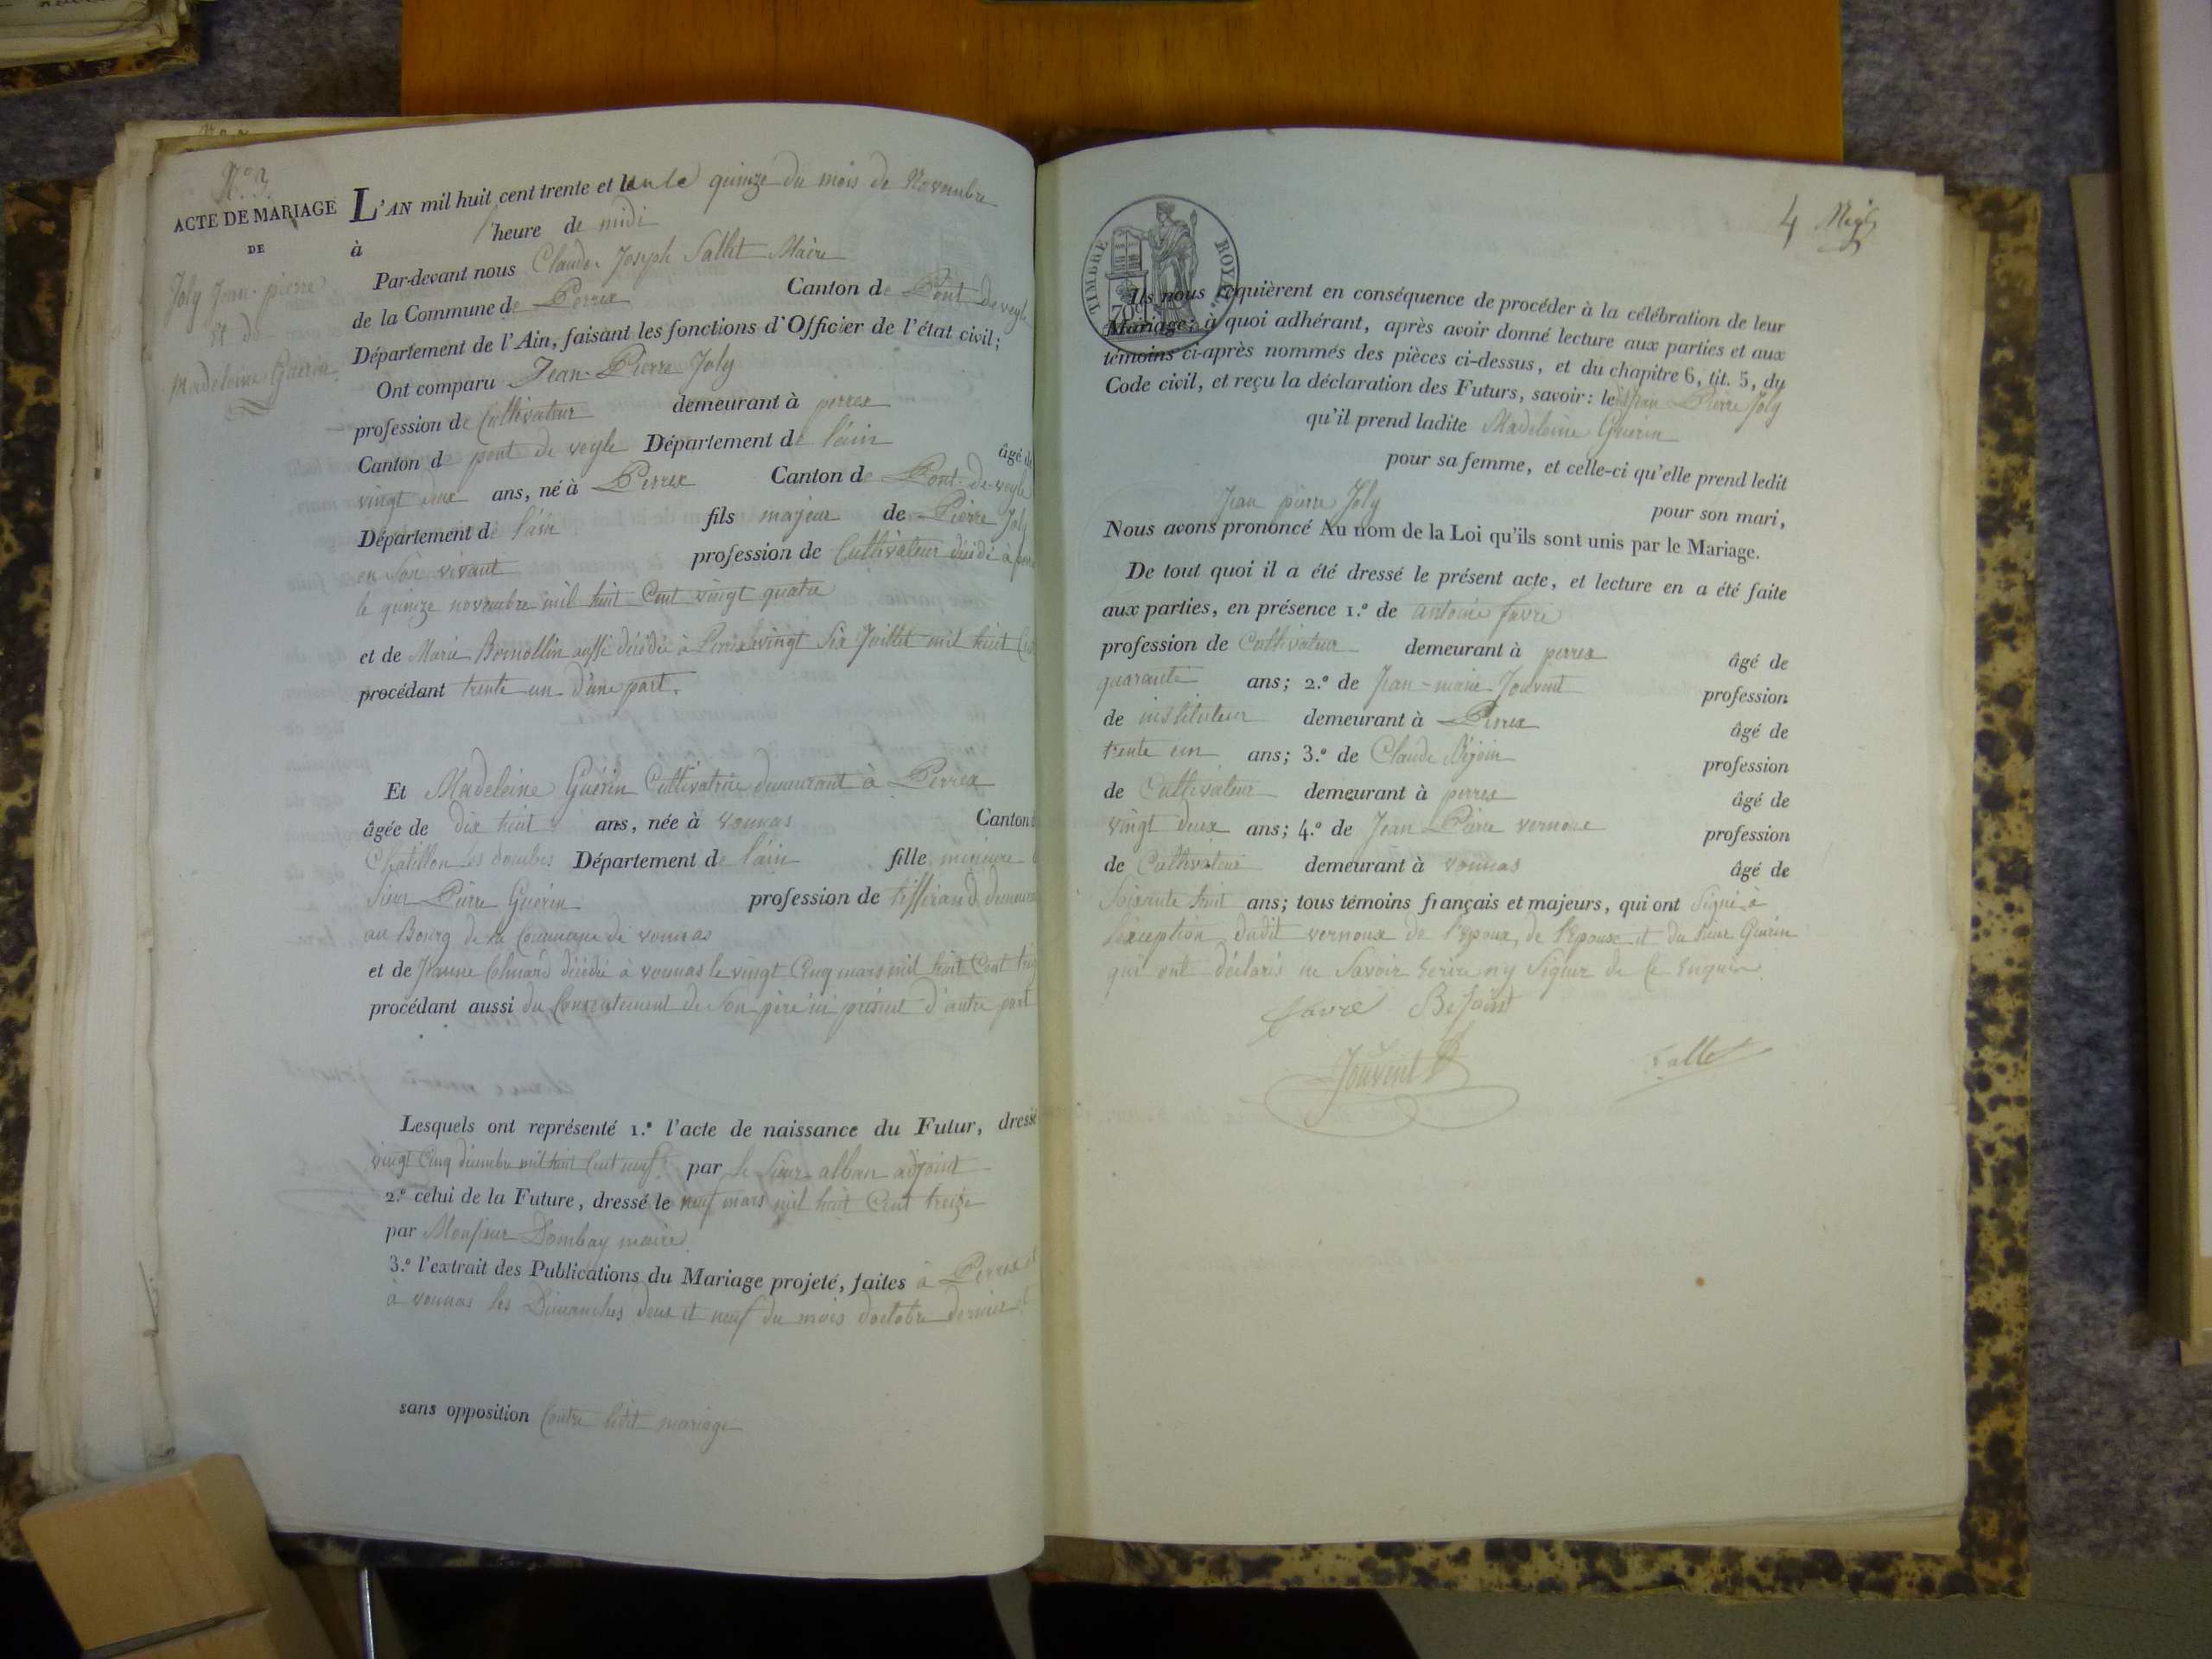 N.º 3.
ACTE DE MARIAGE
DE
Joly Jean-pierre
et de
Madeleine Guérin
L'AN mil huit cent trente et le quinze du mois de Novembre
à l'heure de midi
Par-devant nous Claude Joseph Sallet Maire
de la Commune de Perrex Canton de Pont de veyle
Département de l'Ain, faisant les fonctions d'Officier de l'état civil;
Ont comparu Jean-Pierre Joly
profession de Cultivateur demeurant à perrex
Canton d pont de veyle Département de l'ain âgé de
vingt deux ans, né à Perrex Canton de Pont-de-veyle
Département de l'ain fils majeur de Pierre Joly
en son vivant profession de Cultivateur décédé à
le quinze novembre mil huit Cent vingt quatre
et de Marie aussi décédée à Perrex vingt six Juillet mil huit
procédant trente un d'une part.
Et Madeleine Guérin Cultivatrice demeurant à Perrex
âgée de dix huit ans, née à vonnas Canton
Chatillon les dombes Département de l'ain fille mineure
Sieur Pierre Guérin profession de tisserand
au Bourg de la Commune de vonnas
et de Jeanne décédée à vonnas le vingt Cinq mars mil huit Cent
procédant aussi du Consentement de son père ici présent d'autre part
Lesquels ont représenté 1.º l'acte de naissance du Futur, dressé
vingt Cinq décembre mil huit Cent neuf par le Sieur alban adjoint
2.º celui de la Future, dressé le neuf mars mil huit Cent treize
par Monsieur Dombay maire
3.º l'extrait des Publications du Mariage projeté, faites à Perrex et
à vonnas les Dimanches deux et neuf du mois d'octobre dernier
sans opposition Contre ledit mariage
4
TIMBRE ROYAL
70 c
Ils nous requièrent en conséquence de procéder à la célébration de leur
Mariage; à quoi adhérant, après avoir donné lecture aux parties et aux
témoins ci-après nommés des pièces ci-dessus, et du chapitre 6, tit. 5, du
Code civil, et reçu la déclaration des Futurs, savoir: ledit Jean Pierre Joly
qu'il prend ladite Madeleine Guerin
pour sa femme, et celle-ci qu'elle prend ledit
Jean pierre Joly pour son mari,
Nous avons prononcé Au nom de la Loi qu'ils sont unis par le Mariage.
De tout quoi il a été dressé le présent acte, et lecture en a été faite
aux parties, en présence 1.º de antoine favre
profession de Cultivateur demeurant à perrex âgé de
quarante ans; 2.º de Jean-marie Jouvent profession
de instituteur demeurant à Perrex âgé de
trente un ans; 3.º de Claude Béjoin profession
de Cultivateur demeurant à perrex âgé de
vingt deux ans; 4.º de Jean Pierre vernoux profession
de Cultivateur demeurant à vonnas âgé de
Soixante huit ans; tous témoins français et majeurs, qui ont Signé à
l'exception dudit vernoux de l'époux, de l'épouse et du Sieur Guérin
qui ont déclaré ne Savoir Ecrire ny Signer de Ce Enquis
favre Bejoint
Jouvent Sallet